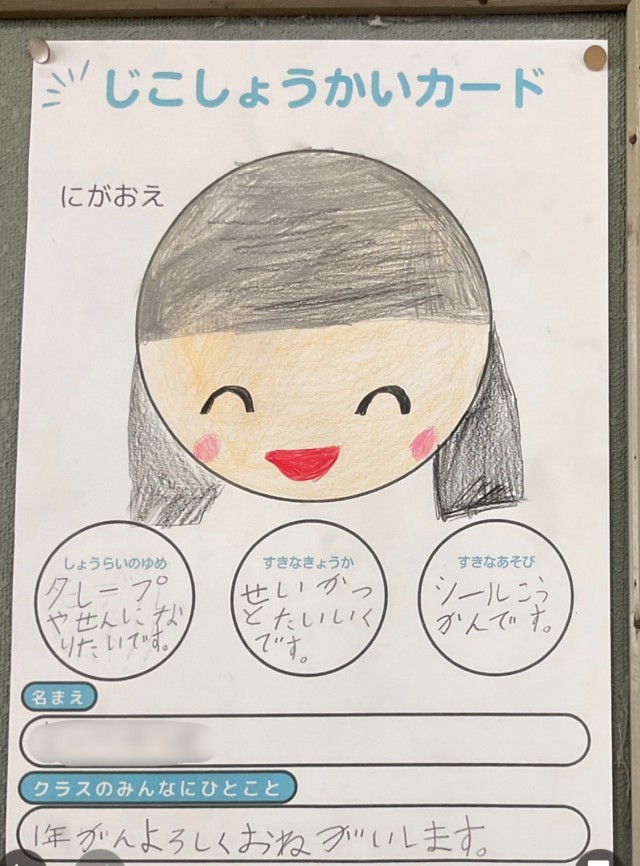 じこしょうかいカード
にがおえ
しょうらいのゆめ
タレープ
やせんにな
りたいです。
すきなきょうか
せいかつ
とたいいく
です。
すきなあそび
シールこう
かんです。
名まえ
クラスのみんなにひとこと
1年がんよろしくおねがいします。